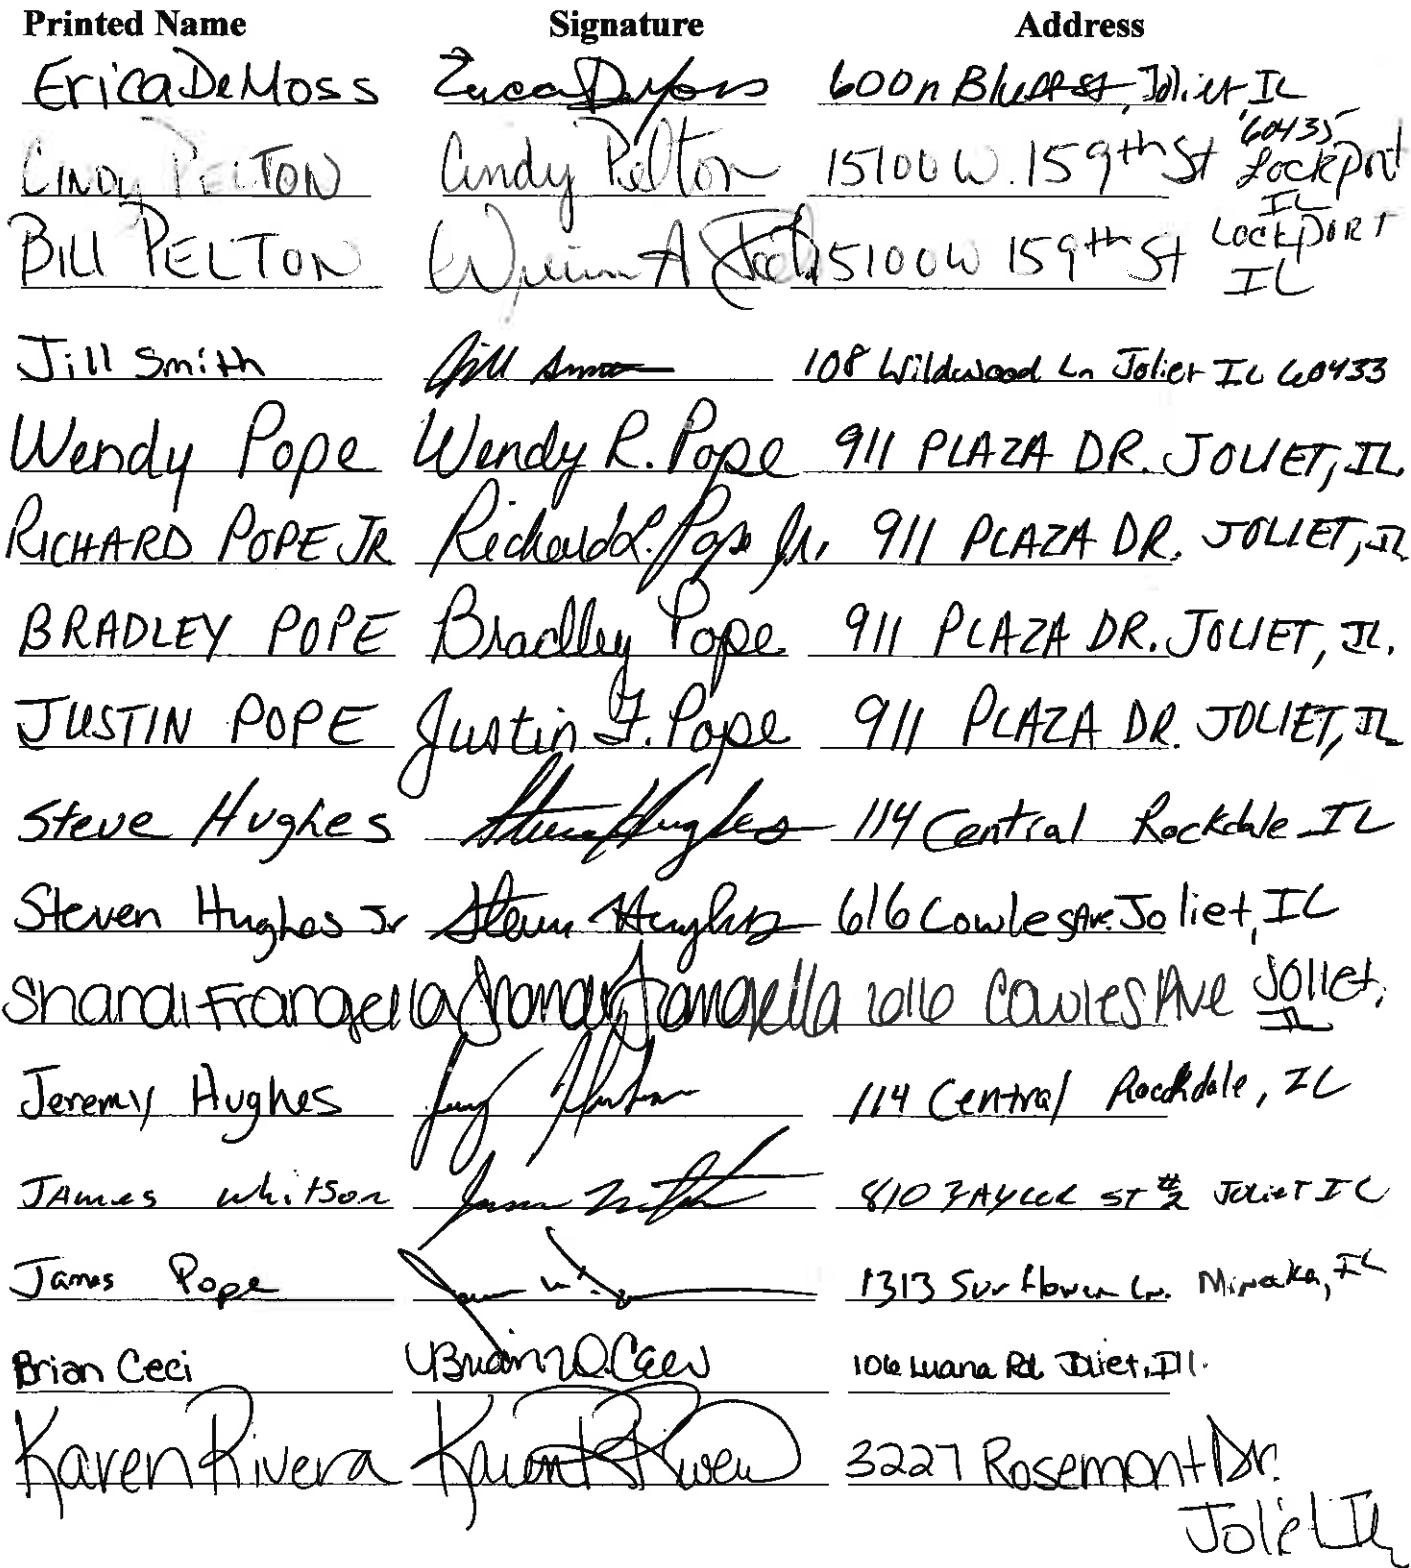 Printed Name Signature Address
Erica DeMoss Erica DeMoss 600 n Bluff St, Joliet IL 60435
CINDY PELTON Cindy Pelton 15100 W. 159th St Lockport IL
BILL PELTON William A 15100 W 159th St LOCKPORT IL
Jill Smith Jill 108 Wildwood Ln Joliet IL 60433
Wendy Pope Wendy R. Pope 911 PLAZA DR. JOLIET, IL
RICHARD POPE JR Richard L. Pope Jr. 911 PLAZA DR. JOLIET, IL
BRADLEY POPE Bradley Pope 911 PLAZA DR. JOLIET, IL.
JUSTIN POPE Justin F. Pope 911 PLAZA DR. JOLIET, IL
Steve Hughes Steve Hughes 114 Central Rockdale IL
Steven Hughes Jr Steven Hughes 616 Cowles Ave. Joliet, IL
Shandi Frangella Shandi Frangella 1616 Cowles Ave Joliet, IL
Jeremy Hughes 114 Central Roackdale, IL
JAMES whitson 810 ST #2 JOLIET IL
James Pope 1313 Sunflower Ln. Minooka, IL
Brian Ceci Brian D. Ceci 106 Luana Rd. Joliet, Ill.
Karen Rivera Karen R Rivera 3227 Rosemont Dr.
Joliet IL